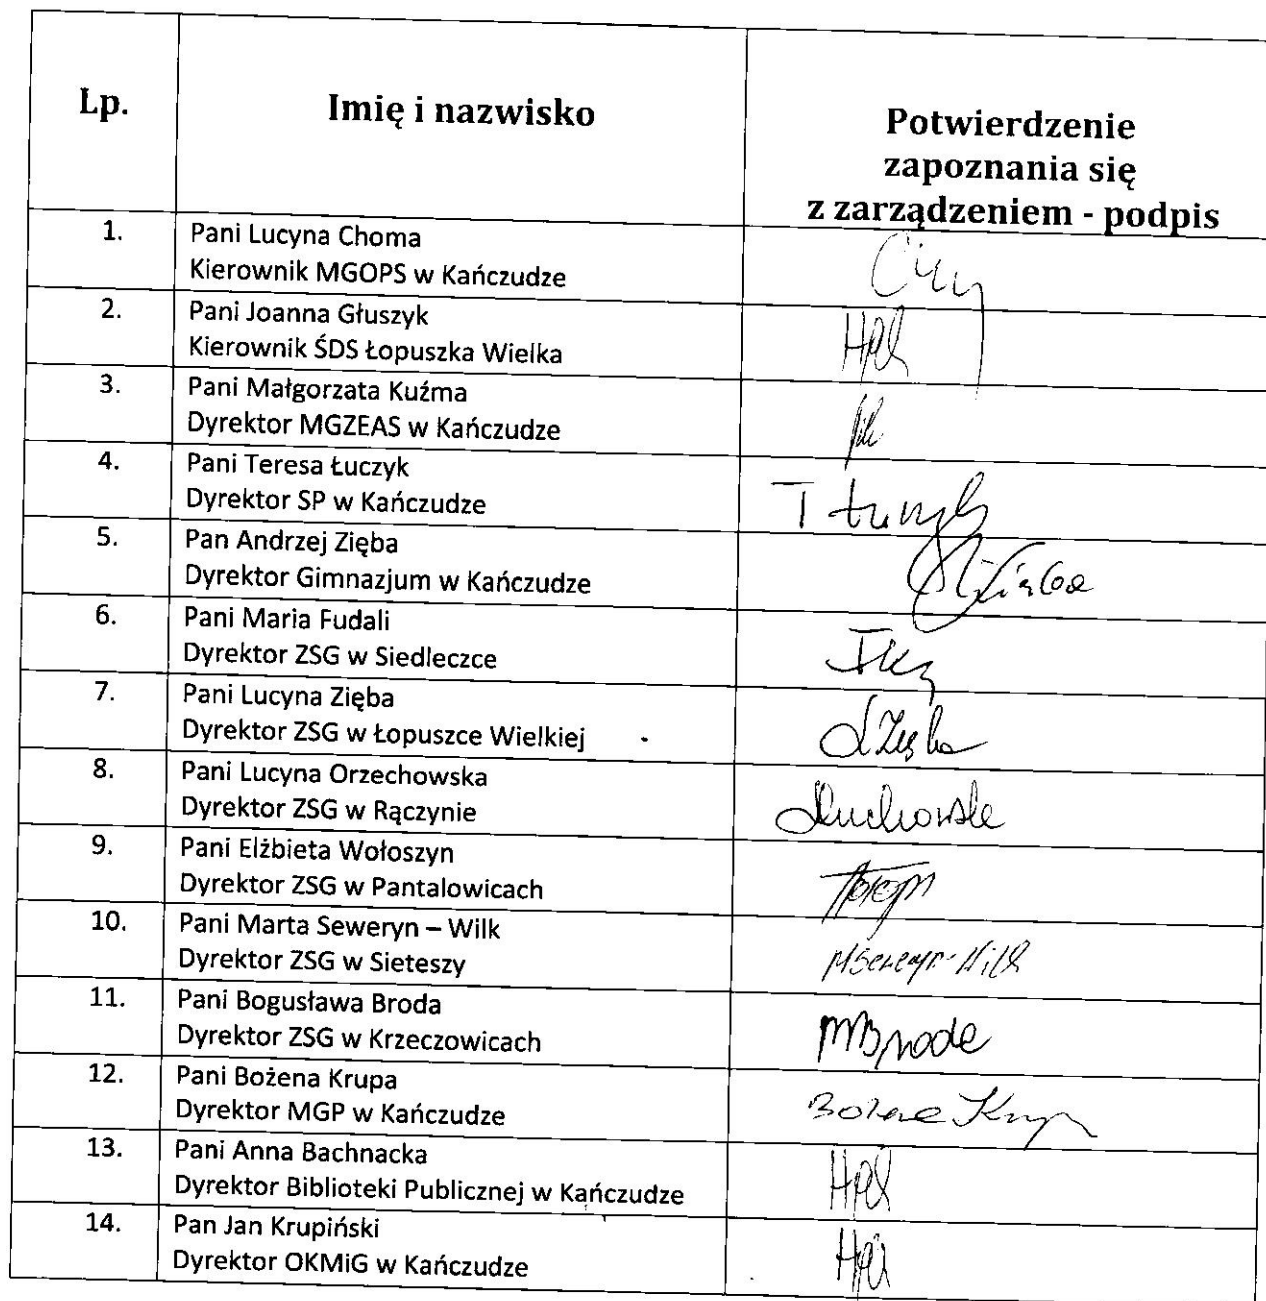 Lp.
Imię i nazwisko
Potwierdzenie
zapoznania się
z zarządzeniem - podpis
1.
Pani Lucyna Choma
Kierownik MGOPS w Kańczudze
2.
Pani Joanna Głuszyk
Kierownik ŚDS Łopuszka Wielka
3.
Pani Małgorzata Kuźma
Dyrektor MGZEAS w Kańczudze
4.
Pani Teresa Łuczyk
Dyrektor SP w Kańczudze
5.
Pan Andrzej Zięba
Dyrektor Gimnazjum w Kańczudze
6.
Pani Maria Fudali
Dyrektor ZSG w Siedleczce
7.
Pani Lucyna Zięba
Dyrektor ZSG w Łopuszce Wielkiej
8.
Pani Lucyna Orzechowska
Dyrektor ZSG w Rączynie
9.
Pani Elżbieta Wołoszyn
Dyrektor ZSG w Pantalowicach
10.
Pani Marta Seweryn – Wilk
Dyrektor ZSG w Sieteszy
MSeweryn-Wilk
11.
Pani Bogusława Broda
Dyrektor ZSG w Krzeczowicach
12.
Pani Bożena Krupa
Dyrektor MGP w Kańczudze
13.
Pani Anna Bachnacka
Dyrektor Biblioteki Publicznej w Kańczudze
14.
Pan Jan Krupiński
Dyrektor OKMiG w Kańczudze